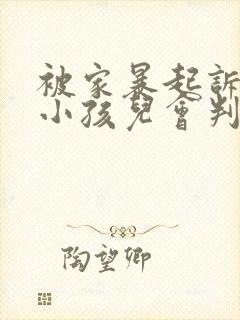 被家暴起訴
小孩兒會判
陶望卿